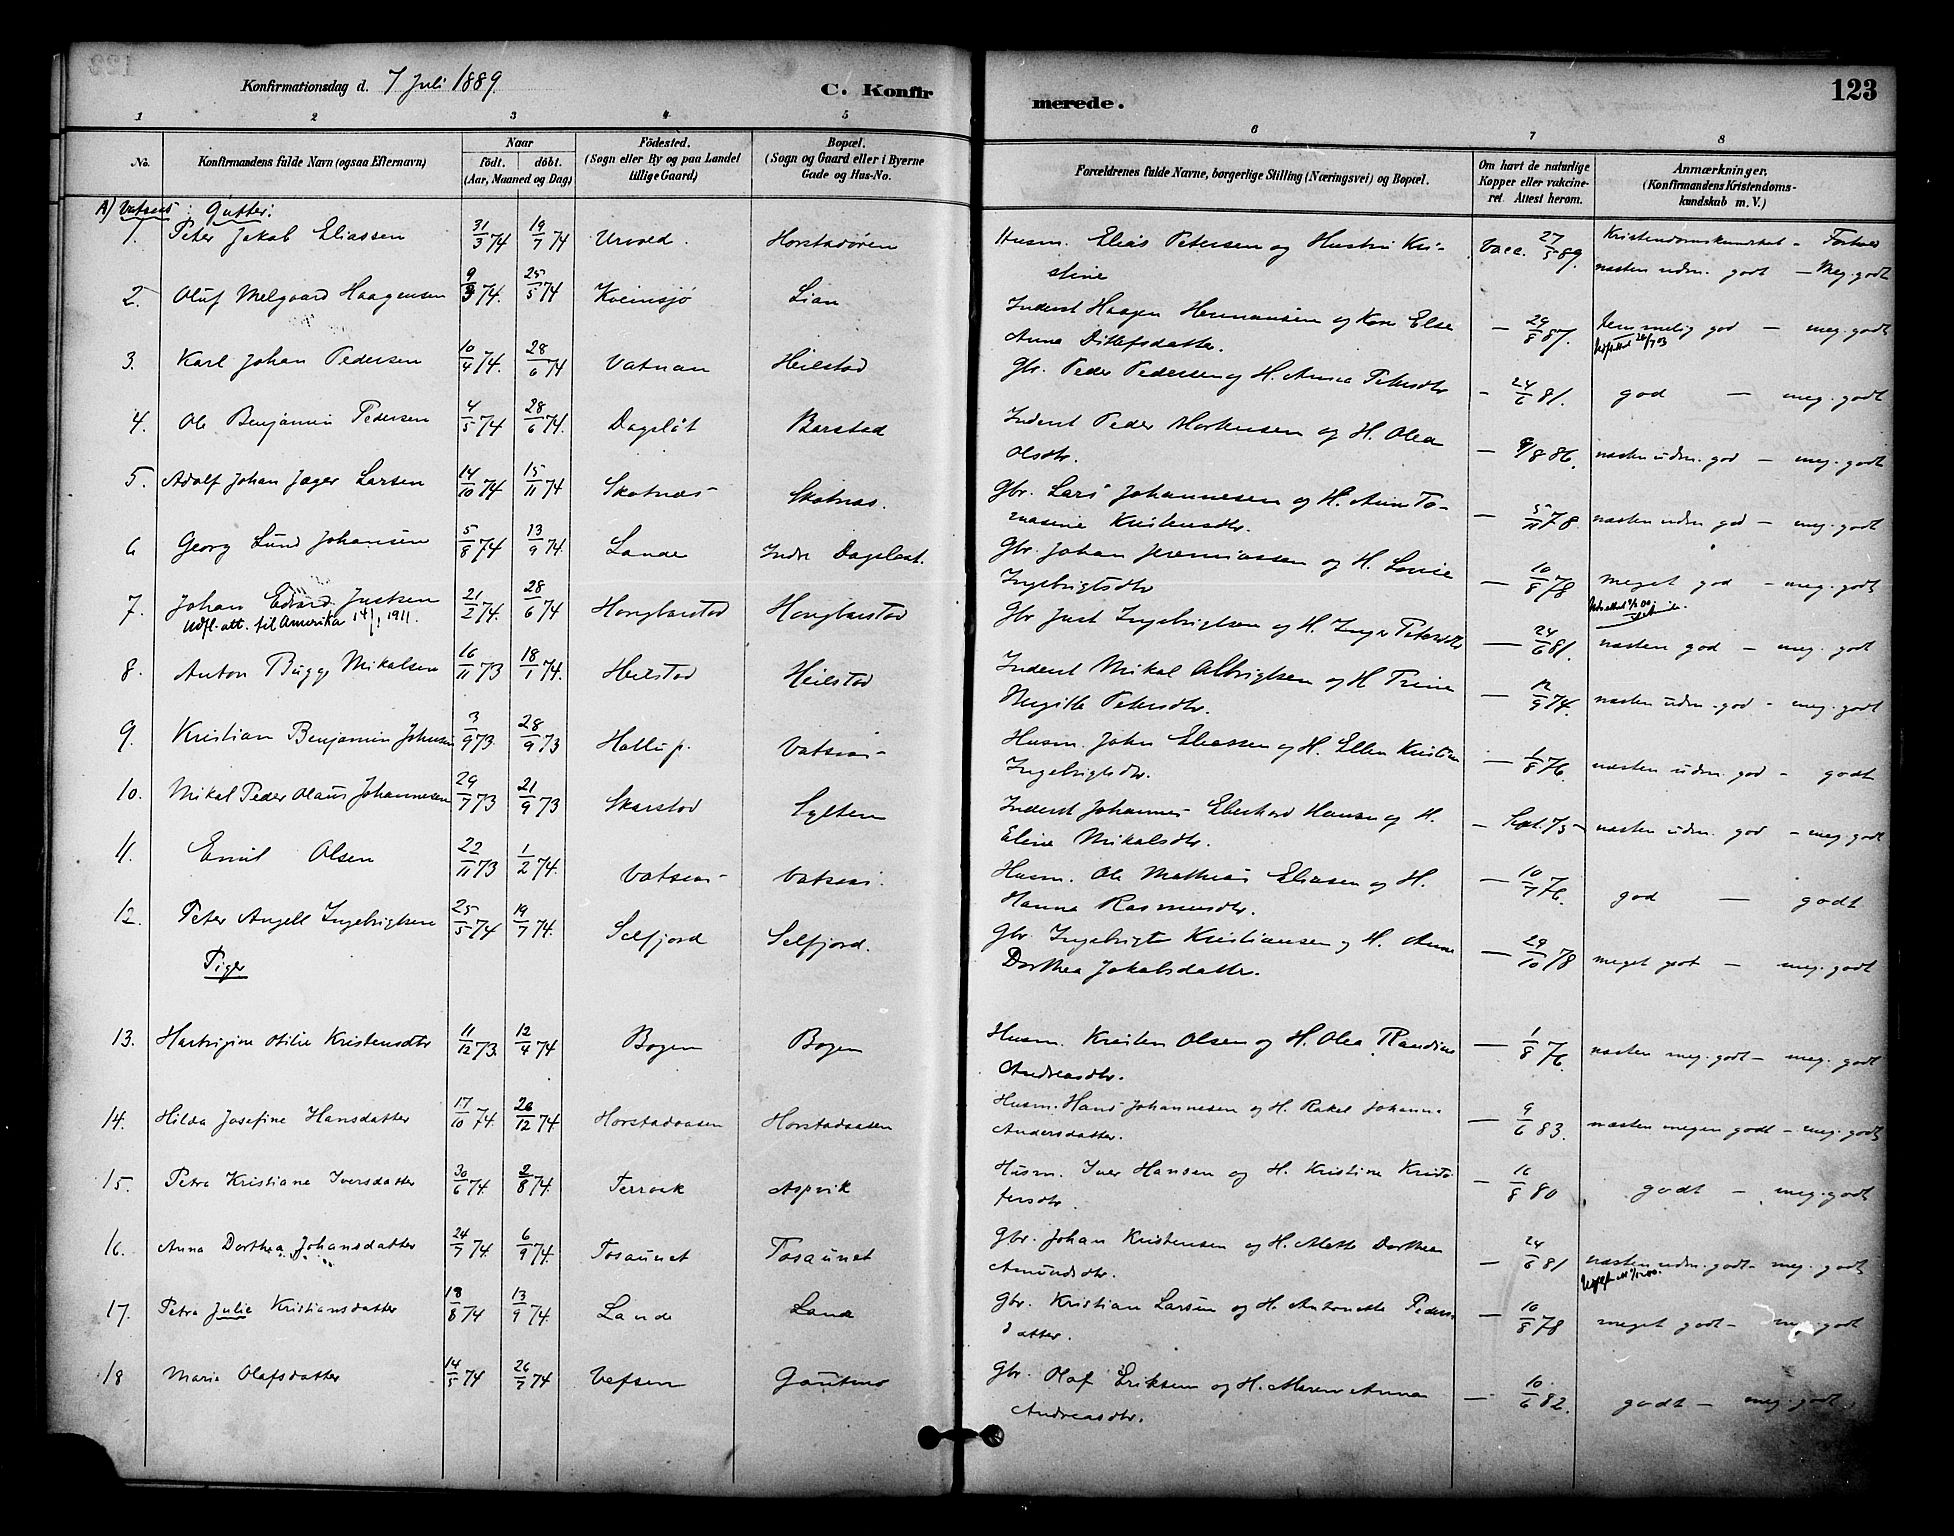 Konfirmationsdag d. 7 Juli 1889.
C. Konfirmerede.
123
1 2 3 4 5 6 7 8
No. Konfirmandens fulde Navn (ogsaa Efternavn) Naar födt. döbt. (Aar, Maaned og Dag) Födested. (Sogn eller By og paa Landet tillige Gaard) Bopæl. (Sogn og Gaard eller i Byerne Gade og Hus-No. Forældrenes fulde Navne, borgerlige Stilling (Næringsvei) og Bopæl. Om havt de naturlige Kopper eller vakcineret. Attest herom. Anmærkninger. (Konfirmandens Kristendomskundskab m. V.)
A) Vatsaas: Gutter:
1. Peter Jakob Eliassen 31/3 74 19/7 74 Urvold. Horstadören Husm. Elias Petersen og Hustru Kristine Vacc. 27/5 89. Kristendomskundskab - Forhor næsten udm. godt - Meg. godt
2. Oluf Melgaard Haagensen 9/3 74. 25/5 74 Kveinsjø Lian Inderst Haagen Hermansen og Kone Else Anna Ditlefsdatter. - 29/8 87. temmelig god - meg. godt
3. Karl Johan Pedersen 10/4 74. 28/6 74 Vatnan Heilstad Gbr. Peder Pedersen og H. Anna Petersdtr - 24/6 81. god - meg. godt
4. Ole Benjamin Pedersen 4/5 74 28/6 74. Dagslöt Barstad Inderst Peder Mortensen og H. Olea Olsdtr. - 9/8 86. næsten udm. god - meg. godt
5. Adolf Johan Jæger Larsen 14/10 74 15/11 74 Skotnæs Skotnæs. Gbr. Lars Johannesen og H. Ann Tomasine Kristensdtr. - 5/11 78. næsten udm. god - meg. godt
6 Georg Lund Johansen 5/8 74 13/9 74. Lande Indre Dagsloat. Gbr. Johan Jeremiassen og H. Lovise Ingebrigtsdtr - 10/8 78 meget god - meg. godt
7. Johan Edvard Justsen 21/2 74. 28/6 74 Hongbarstad Hongbarstad Gbr Just Ingebrigtsen og H. Inger Petersdtr - 24/6 81. næsten god - meg. godt
Udfl. att. til Amerika 14/1 1911.
8. Anton Bugge Mikalsen 16/11 73 18/1 74. Heilstad Heilstad Inderst Mikal Albrigtsen og H Trine Birgitte Petersdtr. - 12/9 74. næsten udm. god - meg. godt
9. Kristian Benjamin Johnsen 3/9 73 28/9 73 Hollup. Vatsaas Husm. John Eliassen og H. Ellen Kristine Ingebrigtsdtr. - 1/8 76. næsten udm. god - godt
10. Mikal Peder Olaus Johannesen 29/7 73 21/9 73 Skarstad Sylten Inderst Johannes Eberhard Hansen og H. Eline Mikalsdtr. - Sept. 75 - næsten udm. god - meg. godt
11. Emil Olsen 22/11 73 1/2 74. Vatsaas Vatsaas. Husm. Ole Mathias Eliasen og H. Hanna Rasmusdtr. - 10/7 76. god - godt
12. Peter Angell Ingebrigtsen 25/5 74 19/7 74. Selfjord Selfjord. Gbr. Ingebrigt Kristiansen og H. Anne Dorthea Jakobsdatter. - 29/10 78 meget godt - meg. godt
Piger
13. Hartvigine Otilie Kristensdtr 11/12 73. 12/4 74 Bogen Bogen Husm. Kristen Olsen og H. Olea Randine Andreasdtr. - 1/8 76. næsten meg. godt - meg. godt
14. Hilda Josefine Hansdatter 17/10 74. 26/12 74. Horstadaasen Horstadaasen Husm. Hans Johannesen og H. Rakel Johanna Andersdatter. - 9/6 83. næsten megen godt - meg. godt
15. Petra Kristiane Iversdatter 30/6 74. 2/8 74. Terraak Aspvik Husm. Iver Hansen og H. Kristine Kristofersdtr. - 16/8 80 godt - meg. godt
16. Anna Dorthea Johansdatter 24/7 74. 6/9 74. Tosaunet Tosaunet Gbr. Johan Kristensen og H. Mette Dorthea Amundsdtr. - 24/6 81 næsten udm. godt - meg. godt
17. Petra Julie Kristiansdatter 18/8 74 13/9 74. Lande Lande Gbr. Kristian Larsen og H. Antonette Pedersdatter. - 10/8 78 meget godt - meg. godt
18 Maria Olafsdatter 14/5 74 26/7 74 Vefsen Gautmo Gbr. Olaf Eriksen og H. Maren Anna Andreasdtr. - 10/6 82. godt - meg. godt